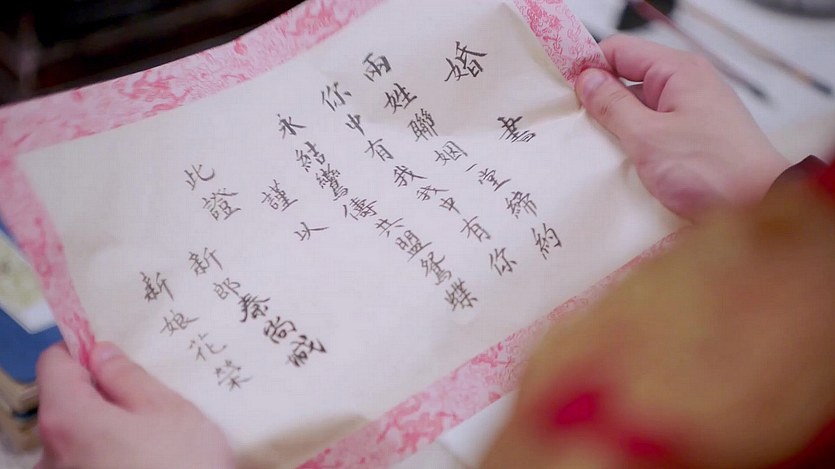 婚書
兩姓聯姻一堂締約
你中有我我中有你
永結鸞儔共盟鴛蝶
謹以
此證
新郎秦尚
新娘花榮